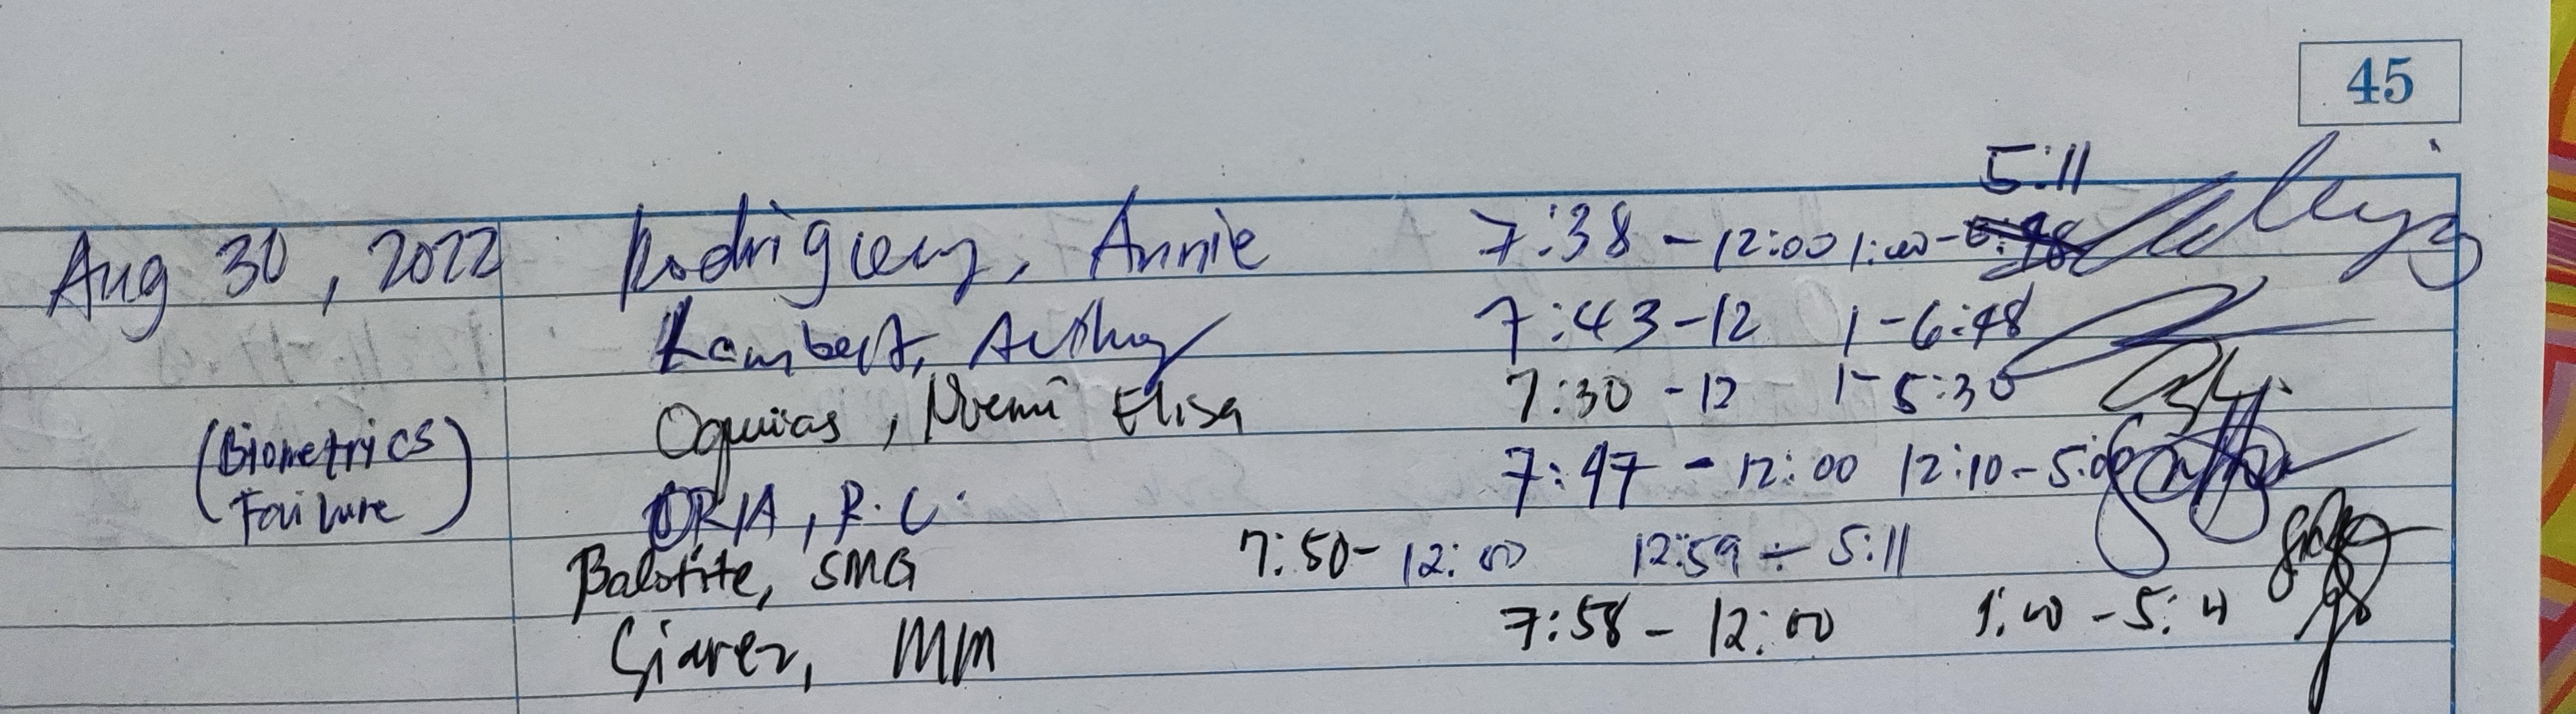 45
5:11
Aug 30, 2022 Rodriguez, Annie 7:38 - 12:00 1:00 -
Lambert, Arthur 7:43 - 12 1 - 6:48
Oquias, Noemi Elisa 7:30 - 12 1 - 5:30
(Biometrics Failure) ORIA, R.C. 7:47 - 12:00 12:10 -
Balotite, SMG 7:50 - 12:00 12:59 - 5:11
Giarez, MM 7:58 - 12:00 1:00 -